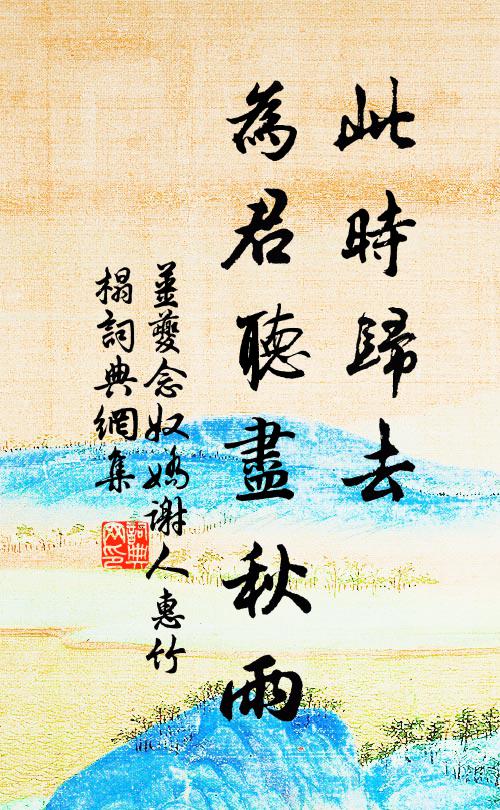 此時歸去
為君聽盡秋雨
姜夔念奴嬌謝人惠竹
榻詞典網集
詞典